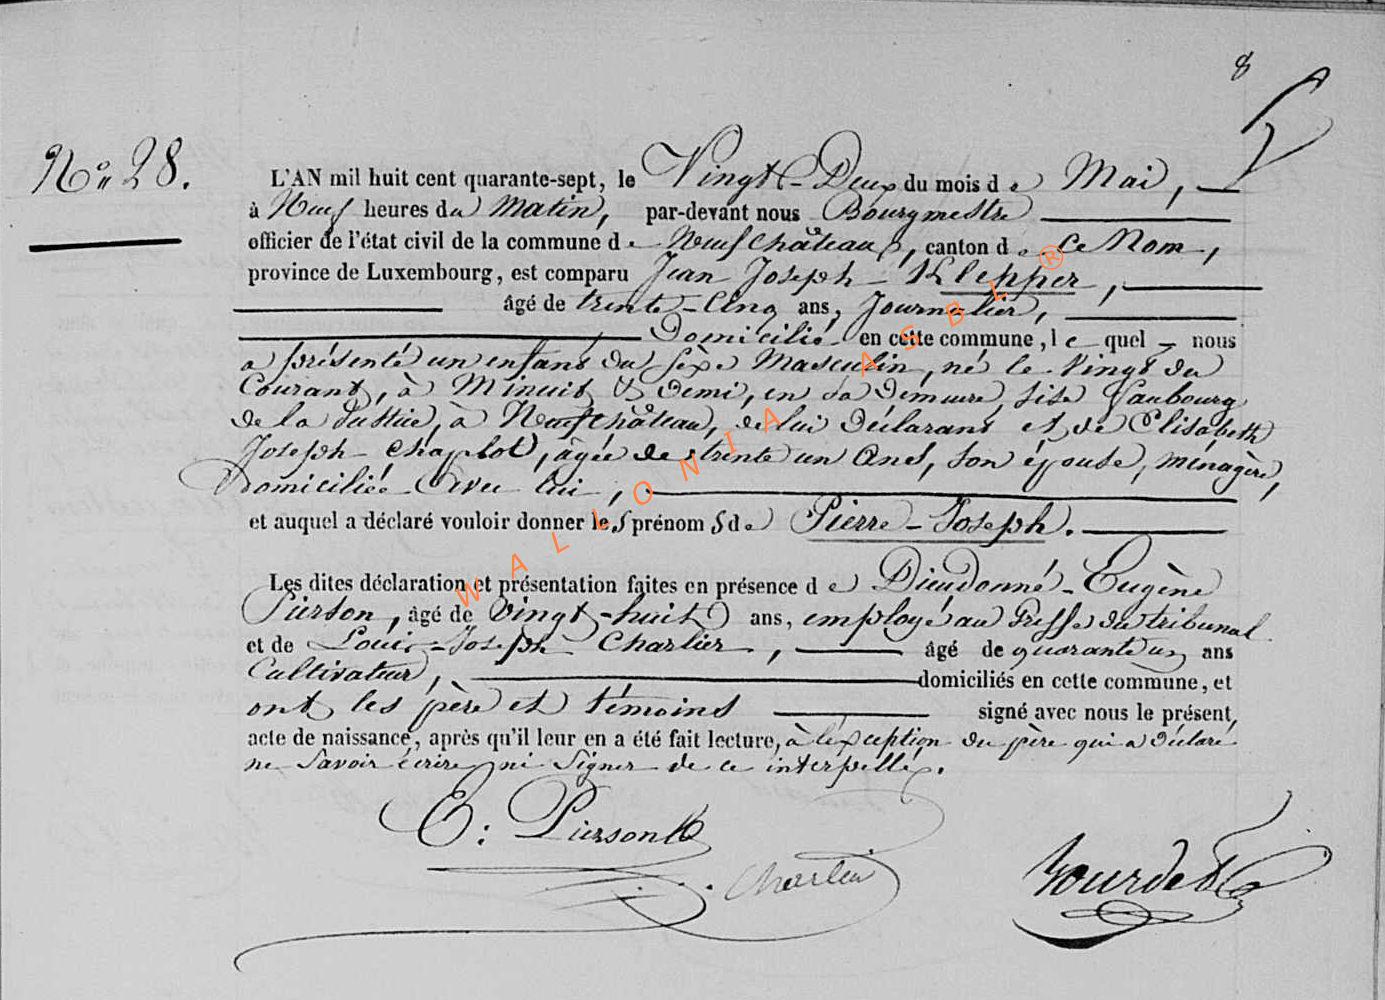 8
N° 28.
L'AN mil huit cent quarante-sept, le Vingt-Deux du mois de Mai,
à Neuf heures du Matin, par-devant nous Bourgmestre
officier de l'état civil de la commune de Neufchâteau, canton de Ce Nom,
province de Luxembourg, est comparu Jean Joseph Klepper,
âgé de trente-Cinq ans, Journalier,
Domicilié en cette commune, le quel nous
a présenté un enfant du sèxe Masculin, né le Vingt du
Courant, à Minuit & Demi, en sa Demeure, sise faubourg
de la Justice, à Neufchâteau, de lui Déclarant et de Elisabeth
Joseph Chaplot, âgée de trente un Ans, son épouse, ménagère,
Domiciliée Avec lui,
et auquel a déclaré vouloir donner les prénoms de Pierre-Joseph.
Les dites déclaration et présentation faites en présence de Dieudonné-Eugène
Pierson, âgé de Vingt-huit ans, employé au Greffe du tribunal
et de Louis-Joseph Charlier, âgé de quarante un ans
Cultivateur, domiciliés en cette commune, et
ont les père et témoins signé avec nous le présent,
acte de naissance, après qu'il leur en a été fait lecture, à l'éxception du père qui a Déclaré
ne Savoir écrire ni Signer de ce interpellé.
E: Pierson
Charlier
Bourdet
WALLONIA ASBL ®